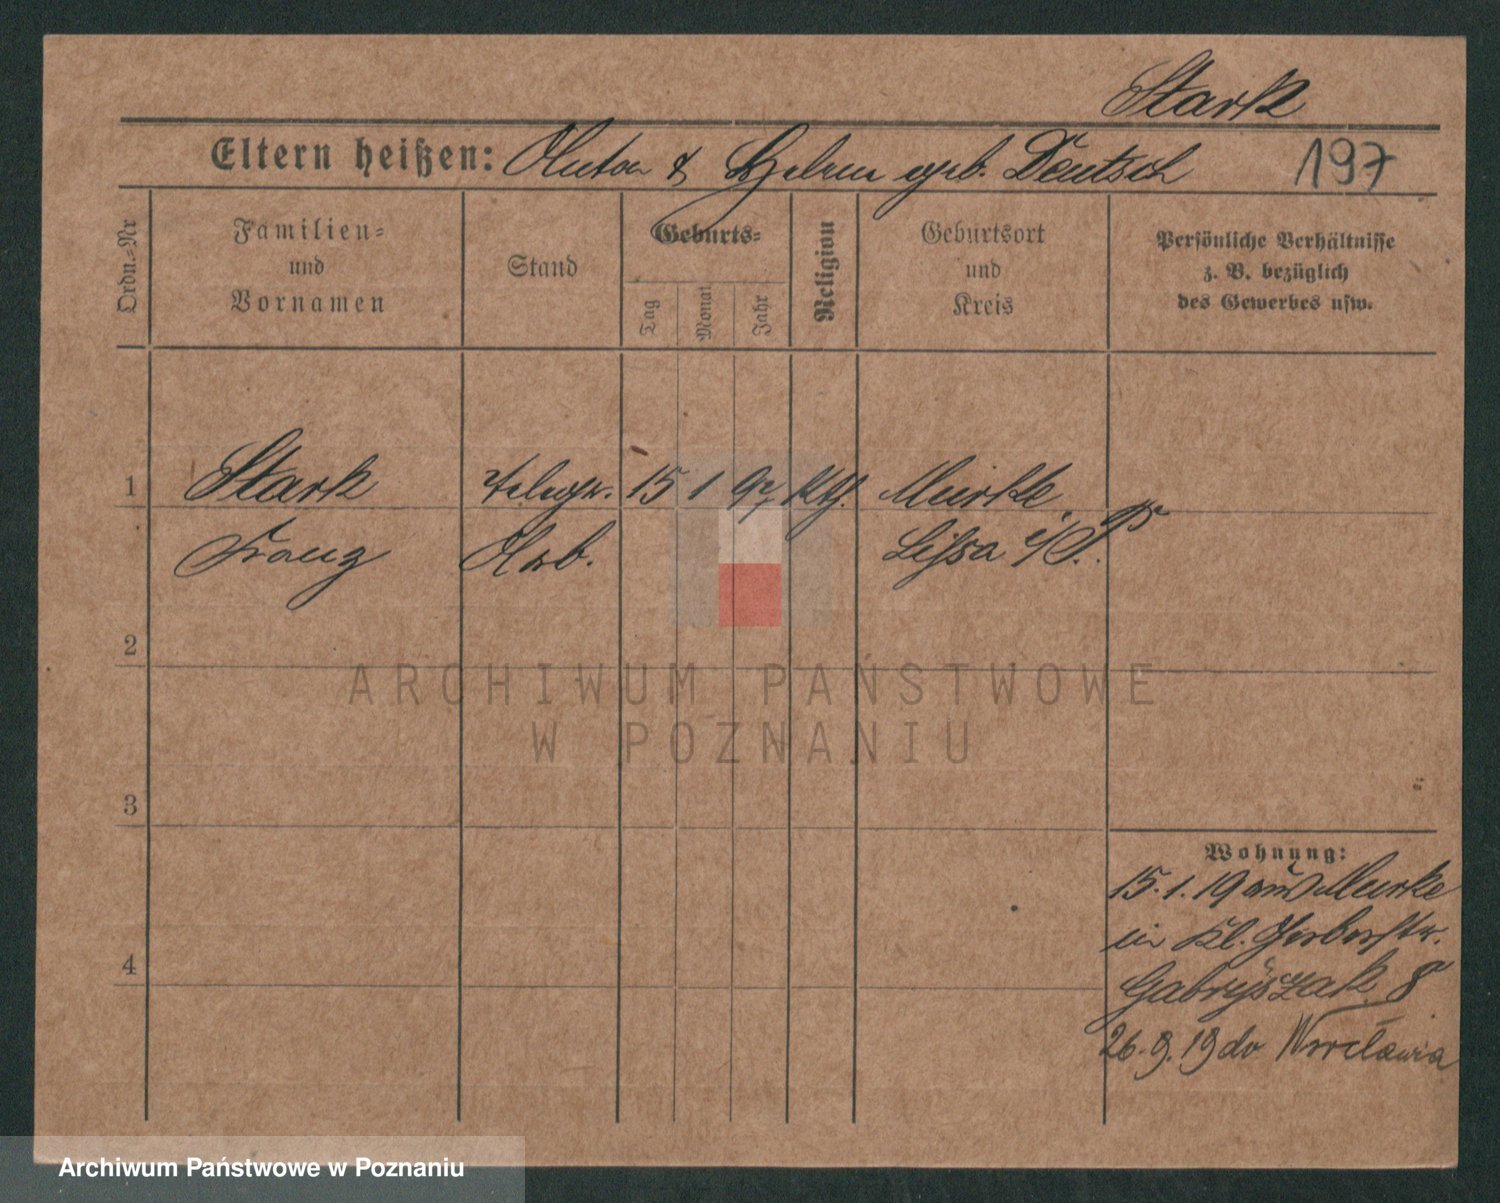 Stark
Eltern heißen: Anton & Helene geb. Deutsch 197
Ordn=Nr Familien= und Vornamen Stand Geburts= Tag Monat Jahr Religion Geburtsort und Kreis Persönliche Verhältnisse z. B. bezüglich des Gewerbes usw.
1 Stark Telegr. 15 1 97 kth. Murke
Franz Arb. Lissa i/P.
2
3
4
Wohnung:
15.1.19 aus Murke
in Kl. Gerberstr.
Gabryszak 8
26.9.19 do Wrocławia
ARCHIWUM PAŃSTWOWE
W POZNANIU
Archiwum Państwowe w Poznaniu